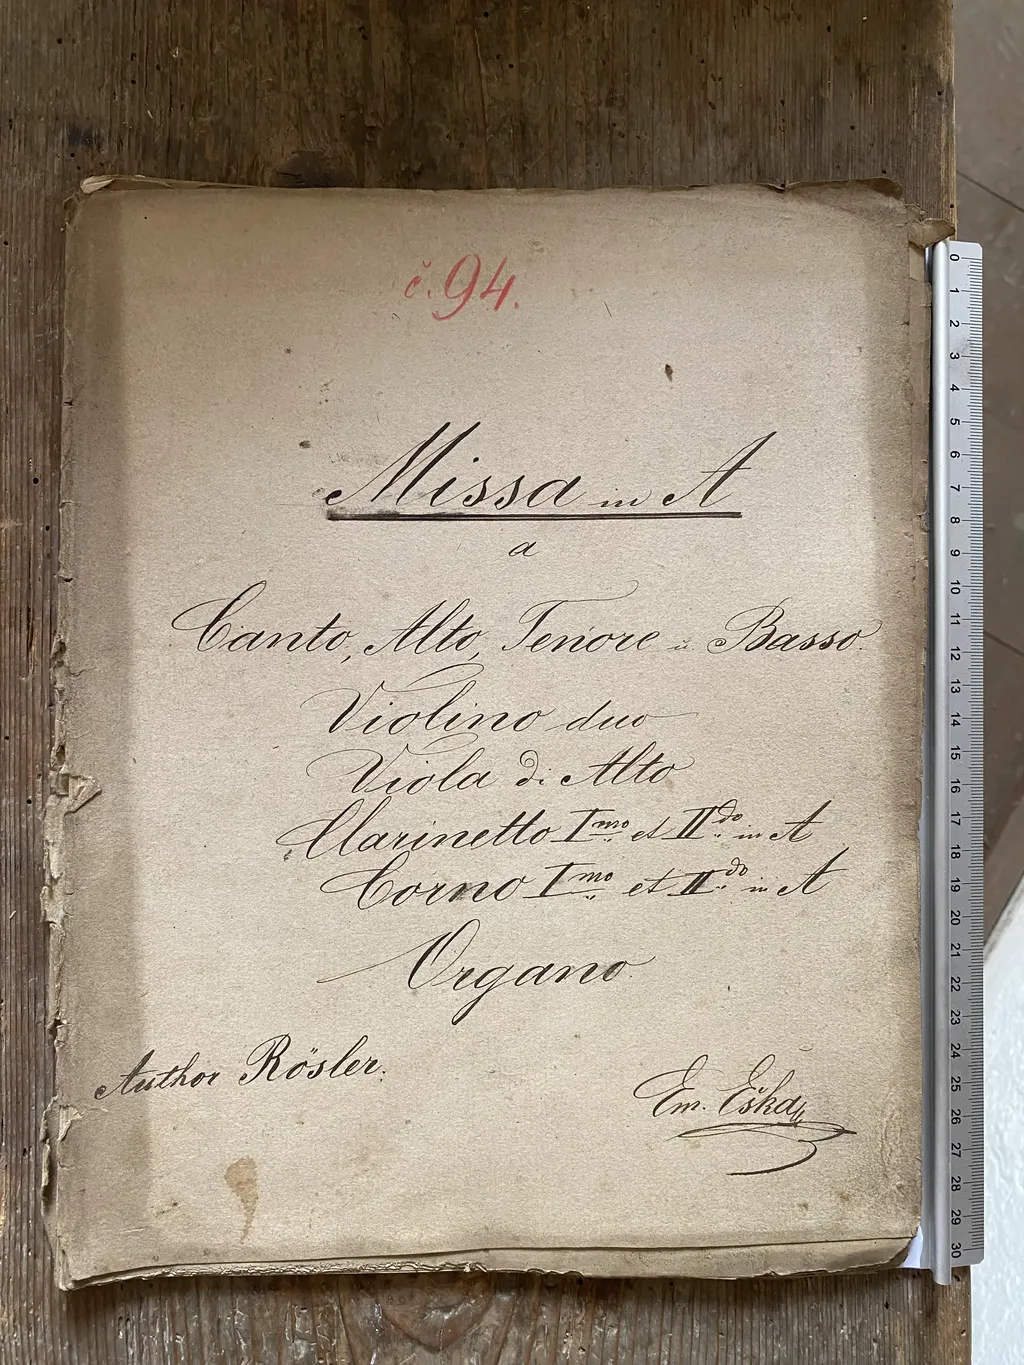 č. 94.
Missa in A
a
Canto, Alto, Tenore è Basso.
Violino duo
Viola di Alto
Clarinetto Imo et IIdo in A
Corno Imo et IIdo in A
Organo.
Author Rösler.
Em. Eška
0 1 2 3 4 5 6 7 8 9 10 11 12 13 14 15 16 17 18 19 20 21 22 23 24 25 26 27 28 29 30